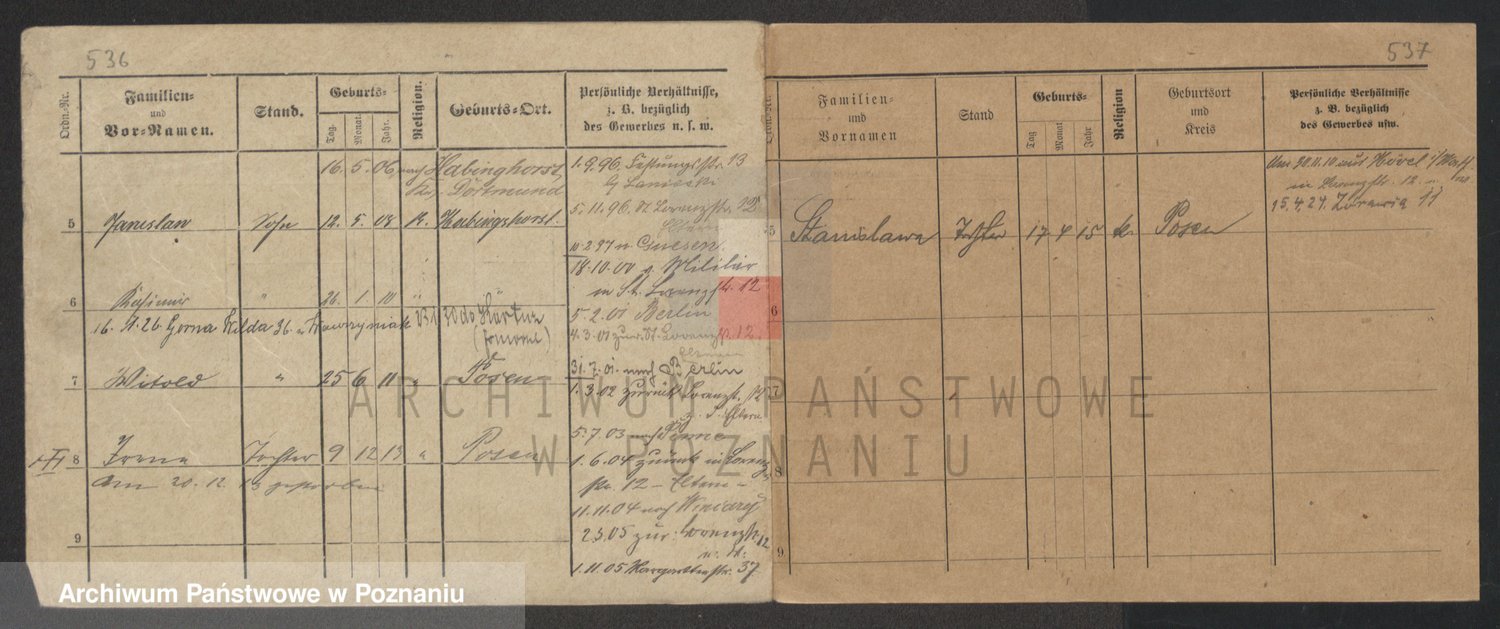 536
Ordn.-Nr.
Familien-
und
Vor-Namen.
Stand.
Geburts-
Tag.
Monat.
Jahr.
Religion.
Geburts-Ort.
Persönliche Verhältnisse,
z. B. bezüglich
des Gewerbes u. s. w.
16. 5. 06 nach Habinghorst,
Dortmund
5 Janeslaw Sohn 12. 5. 08 k. Habingshorst.
6 Kasimir " 26. 1. 10 "
16. 26. Gorna Wilda 36. Wawrzyniak
7 Witold " 25 6 11 " Posen
8 Irena Tochter 9 12 13 " Posen
Am 20. 12. 13 gestorben
9
1.9.96 Festungsstr. 13
5.11.96. St Lorenzstr. 12
Eltern
10.2.97 n. Gnesen.
18.10.00 z. Militär
in St. Lorenzstr. 12
5.2.01 Berlin
4.3.01 zur. St. Lorenzstr. 12
Eltern
31.7.01. nach Berlin
1.3.02 zurück Lorenzst. 12
z. d. Eltern
5.7.03
1.6.04 zurück in Lorenz
str. 12 - Eltern -
11.11.04 nach Winiary
2.5.05 zur. Lorenzstr. 12
1.11.05 Margaretenstr. 37
537
Ordn.-Nr.
Familien-
und
Vornamen
Stand
Geburts-
Tag
Monat
Jahr
Religion
Geburtsort
und
Kreis
Persönliche Verhältnisse
z. B. bezüglich
des Gewerbes usw.
Am 20.11.10 aus Hövel
in Lorenzstr. 12
15.4.21. Zórawia 11
5 Stanislawa Tochter 17 4 15 k. Posen
6
7
8
9
ARCHIWUM PAŃSTWOWE
W POZNANIU
Archiwum Państwowe w Poznaniu